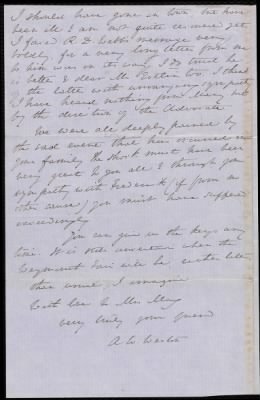 I should have gone in town but have
been ill & am not quite as well yet
I gave R. D. Webb's message very
boldly, for a very long letter from me
to him was on its way. I do trust he
is better & dear Mr Estlin too. I thank
the latter with unvarying sympathy
I have heard nothing from
by the direction of the Advocate
We were all deeply pained by
the sad event that has occurred in
your family, the shock must have been
very great to you all & through your
sympathy with Frederick, if from no
other cause, you must have suffered
exceedingly.
You can give in the keys any
time. It is still uncertain when the
Weymouth Fair will be, rather later
than usual, I imagine
Best love to Mrs May
very truly your friend
A W Weston